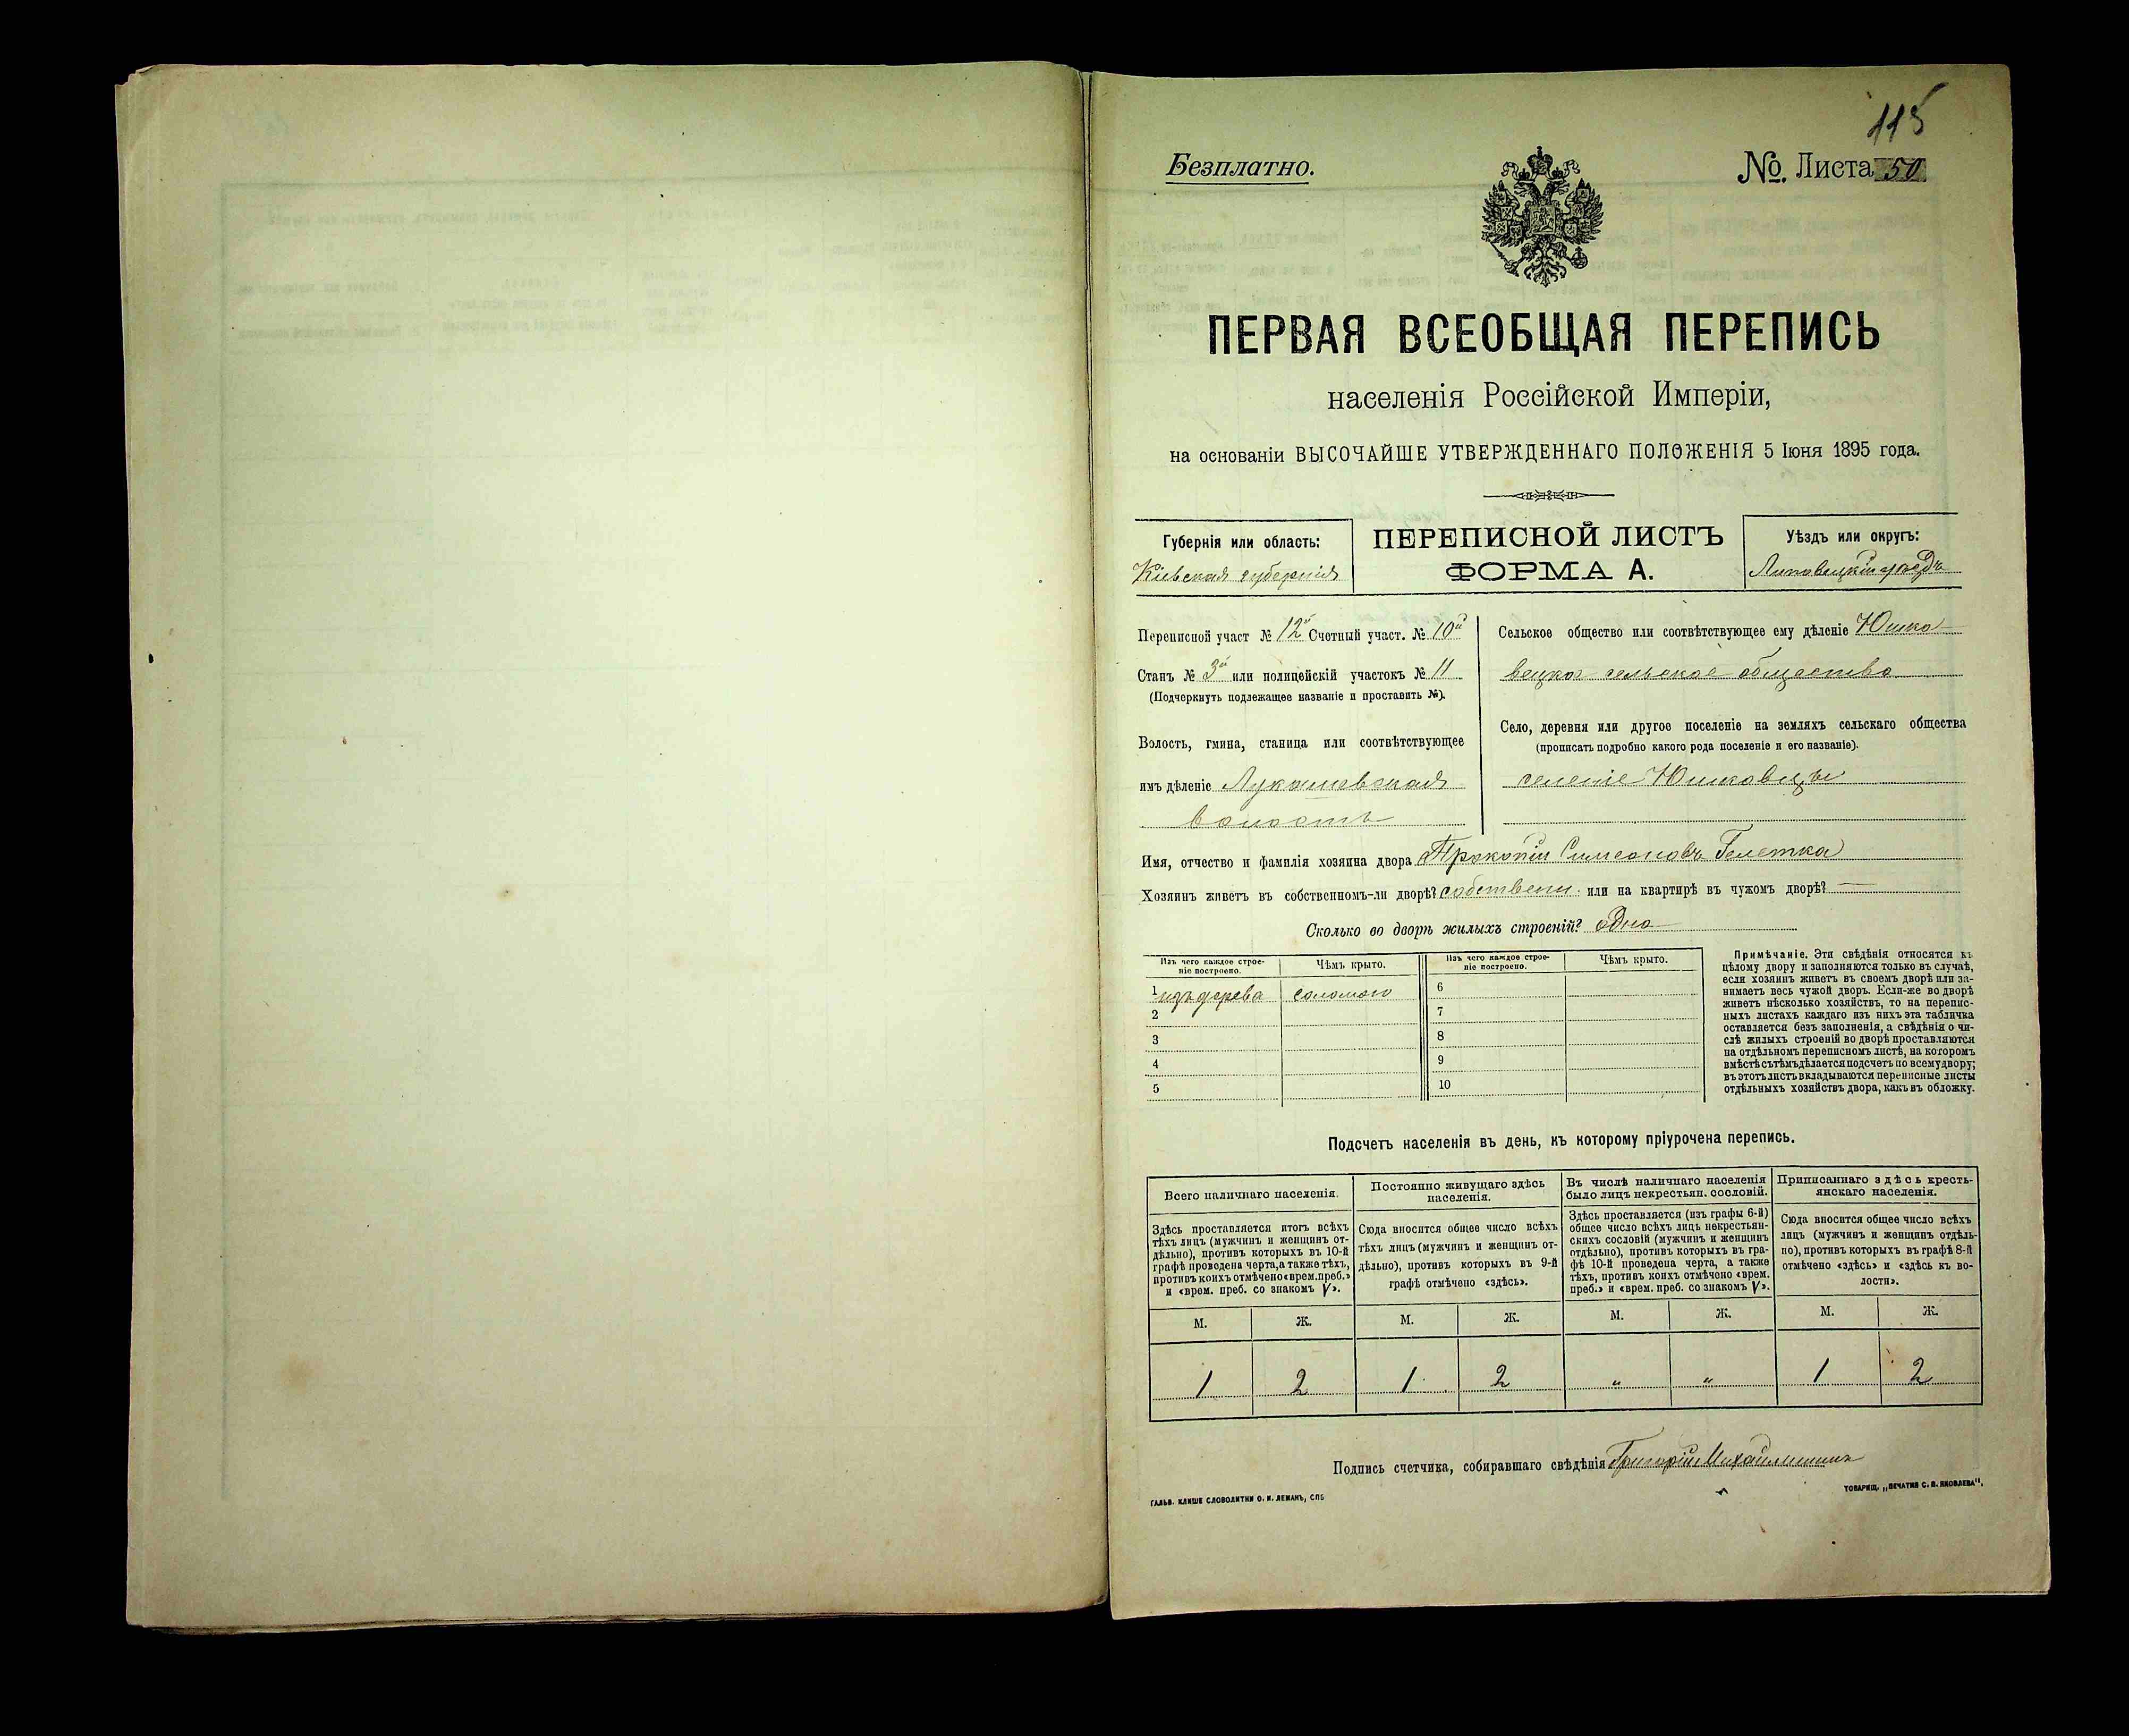 115
Безплатно.
№. Листа 50
ПЕРВАЯ ВСЕОБЩАЯ ПЕРЕПИСЬ
населенія Россійской Имперіи,
на основаніи ВЫСОЧАЙШЕ УТВЕРЖДЕННАГО ПОЛОЖЕНІЯ 5 Іюня 1895 года.
Губернія или область:
Кіевская губернія
ПЕРЕПИСНОЙ ЛИСТЪ
ФОРМА А.
Уѣздъ или округъ:
Липовецкій уѣздъ
Переписной участ № 12й Счетный участ. № 10й
Станъ № 3й или полицейскій участокъ № 11
(Подчеркнуть подлежащее названіе и проставить №).
Волость, гмина, станица или соотвѣтствующее
имъ дѣленіе Лукашевская
волость
Сельское общество или соотвѣтствующее ему дѣленіе Юшко-
вецкое сельское общество
Село, деревня или другое поселеніе на земляхъ сельскаго общества
(прописать подробно какого рода поселеніе и его названіе).
селеніе Юшковцы
Имя, отчество и фамилія хозяина двора Прокопій Симеоновъ Гелетка
Хозяинъ живетъ въ собственномъ-ли дворѣ? собственн. или на квартирѣ въ чужомъ дворѣ? —
Сколько во дворѣ жилыхъ строеній? одно
Изъ чего каждое строе-
ніе построено.
Чѣмъ крыто.
Изъ чего каждое строе-
ніе построено.
Чѣмъ крыто.
1 изъ дерева соломою
2
3
4
5
6
7
8
9
10
Примѣчаніе. Эти свѣдѣнія относятся къ
цѣлому двору и заполняются только въ случаѣ,
если хозяинъ живетъ въ своемъ дворѣ или за-
нимаетъ весь чужой дворъ. Если-же во дворѣ
живетъ нѣсколько хозяйствъ, то на перепис-
ныхъ листахъ каждаго изъ нихъ эта табличка
оставляется безъ заполненія, а свѣдѣнія о чи-
слѣ жилыхъ строеній во дворѣ проставляются
на отдѣльномъ переписномъ листѣ, на которомъ
вмѣстѣ съ тѣмъ дѣлается подсчетъ по всему двору;
въ этотъ листъ вкладываются переписные листы
отдѣльныхъ хозяйствъ двора, какъ въ обложку.
Подсчетъ населенія въ день, къ которому пріурочена перепись.
Всего наличнаго населенія.
Здѣсь проставляется итогъ всѣхъ
тѣхъ лицъ (мужчинъ и женщинъ от-
дѣльно), противъ которыхъ въ 10-й
графѣ проведена черта, а также тѣхъ,
противъ коихъ отмѣчено «врем. преб.»
и «врем. преб. со знакомъ V».
Постоянно живущаго здѣсь
населенія.
Сюда вносится общее число всѣхъ
тѣхъ лицъ (мужчинъ и женщинъ от-
дѣльно), противъ которыхъ въ 9-й
графѣ отмѣчено «здѣсь».
Въ числѣ наличнаго населенія
было лицъ некрестьян. сословій.
Здѣсь проставляется (изъ графы 6-й)
общее число всѣхъ лицъ некрестьян-
скихъ сословій (мужчинъ и женщинъ
отдѣльно), противъ которыхъ въ гра-
фѣ 10-й проведена черта, а также
тѣхъ, противъ коихъ отмѣчено «врем.
преб.» и «врем. преб. со знакомъ V».
Приписаннаго здѣсь кресть-
янскаго населенія.
Сюда вносится общее число всѣхъ
лицъ (мужчинъ и женщинъ отдѣль-
но), противъ которыхъ въ графѣ 8-й
отмѣчено «здѣсь» и «здѣсь къ во-
лости».
М. Ж. М. Ж. М. Ж. М. Ж.
1 2 1 2 " " 1 2
Подпись счетчика, собиравшаго свѣдѣнія Григорій
ГАЛЬВ. КЛИШЕ СЛОВОЛИТНИ О. И. ЛЕМАНЪ, СПБ
ТОВАРИЩ. „ПЕЧАТНЯ С. П. ЯКОВЛЕВА".